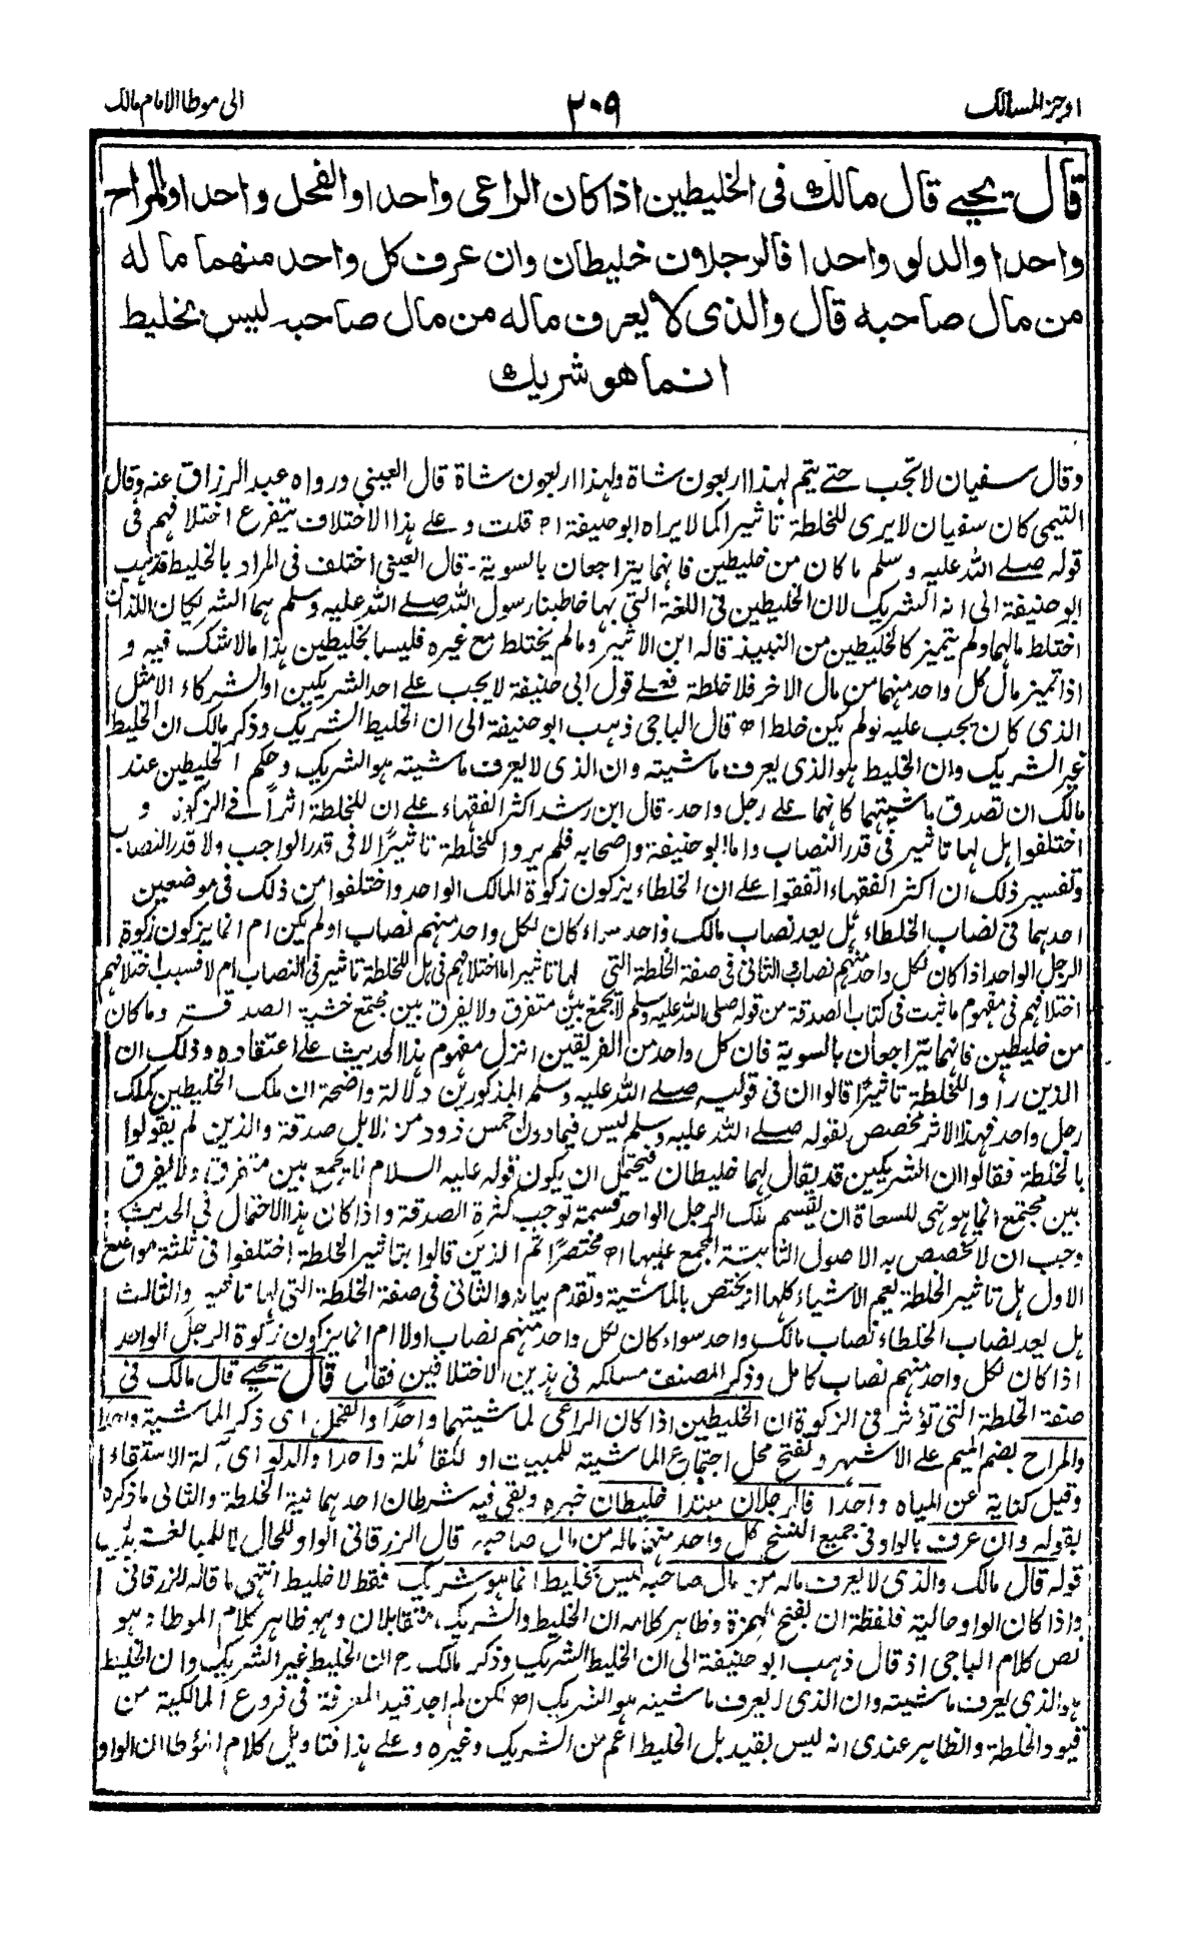 اوجز المسالك ٢٠٩ الى موطا الامام مالك
قال يحيى قال مالك فى الخليطين اذا كان الراعى واحدا والفحل واحدا والمراح
واحدا والدلو واحدا فالرجلان خليطان وان عرف كل واحد منهما ماله
من مال صاحبه قال والذى لا يعرف ماله من مال صاحبه ليس بخليط
انما هو شريك
وقال سفيان لا تجب حتى يتم لهذا اربعون شاة ولهذا اربعون شاة قال العينى ورواه عبد الرزاق عنه وقال
التيمى كان سفيان لا يرى للخلطة تاثيرا كما لا يراه ابو حنيفة اه قلت وعلى هذا الاختلاف يتفرع اختلافهم فى
قوله صلى الله عليه وسلم ما كان من خليطين فانهما يتراجعان بالسوية۔ قال العينى اختلف فى المراد بالخليط فذهب
ابو حنيفة الى انه الشريك لان الخليطين فى اللغة التى بها خاطبنا رسول الله صلى الله عليه وسلم هما الشريكان اللذان
اختلط مالهما ولم يتميز كالخليطين من النبيذ قاله ابن الاثير وما لم يختلط مع غيره فليسا بخليطين هذا مالا شك فيه و
اذا تميز مال كل واحد منهما من مال الاخر فلا خلطة فعلى قول ابى حنيفة لا يجب على احد الشريكين او الشركاء الا مثل
الذى كان يجب عليه لو لم يكن خلط اه قال الباجى ذهب ابو حنيفة الى ان الخليط الشريك وذكر مالك ان الخليط
غير الشريك وان الخليط هو الذى يعرف ماشيته وان الذى لا يعرف ماشيته هو الشريك وحكم الخليطين عند
مالك ان تصدق ماشيتهما كانهما على رجل واحد۔ قال ابن رشد اكثر الفقهاء على ان للخلطة اثراً فى الزكوة و
اختلفوا هل لها تاثير فى قدر النصاب واما ابو حنيفة واصحابه فلم يروا للخلطة تاثيرًا لا فى قدر الواجب ولا قدر النصاب
وتفسير ذلك ان اكثر الفقهاء اتفقوا على ان الخلطاء يزكون زكوة المالك الواحد واختلفوا من ذلك فى موضعين
احدهما فى نصاب الخلطاء هل يعد نصاب مالك واحد سواء كان لكل واحد منهم نصاب او لم يكن ام انما يزكون زكوة
الرجل الواحد اذا كان لكل واحد منهم نصاب الثانى فى صفة الخلطة التى لها تاثير اما اختلافهم فى هل للخلطة تاثير فى النصاب ام لا فسبب اختلافهم
اختلافهم فى مفهوم ما ثبت فى كتاب الصدقة من قوله صلى الله عليه وسلم لا يجمع بين متفرق ولا يفرق بين مجتمع خشية الصدقة وما كان
من خليطين فانهما يتراجعان بالسوية فان كل واحد من الفريقين انزل مفهوم هذا الحديث على اعتقاده وذلك ان
الذين رأوا للخلطة تاثيرًا قالوا ان فى قوليه صلى الله عليه وسلم المذكورين دلالة واضحة ان ملك الخليطين كملك
رجل واحد فهذا الاثر مخصص لقوله صلى الله عليه وسلم ليس فيما دون خمس ذود من الابل صدقة والذين لم يقولوا
بالخلطة فقالوا ان الشريكين قد يقال لهما خليطان فيحتمل ان يكون قوله عليه السلام لا يجمع بين متفرق ولا يفرق
بين مجتمع انما هو نهى للسعاة ان يقسم ملك الرجل الواحد قسمة توجب كثرة الصدقة واذا كان هذا الاحتمال فى الحديث
وجب ان لا تخصص به الاصول الثابتة المجمع عليها اه مختصرًا ثم الذين قالوا بتاثير الخلطة اختلفوا فى ثلثة مواضع
الاول هل تاثير الخلطة يعم الاشياء كلها او يختص بالماشية وتقدم بيانه والثانى فى صفة الخلطة التى لها تاثير والثالث
هل يعد نصاب الخلطاء نصاب مالك واحد سواء كان لكل واحد منهم نصاب اولا ام انما يزكون زكوة الرجل الواحد
اذا كان لكل واحد منهم نصاب كامل وذكر المصنف مسلكه فى هذين الاختلافين فقال قال يحيى قال مالك فى
صفة الخلطة التى تؤثر فى الزكوة ان الخليطين اذا كان الراعى لماشيتهما واحدًا والفحل اى ذكر الماشية واحدًا
والمراح بضم الميم على الاشهر وتفتح محل اجتماع الماشية للمبيت او للقائلة واحدا والدلو اى آلة الاستقاء
وقيل كناية عن المياه واحدا فالرجلان مبتدا خليطان خبره وبقى فيه شرطان احدهما نية الخلطة والثانى ما ذكره
بقوله وان عرف بالواو فى جميع النسخ كل واحد منهما ماله من مال صاحبه قال الزرقانى الواو للحال لا للمبالغة
قوله قال مالك والذى لا يعرف ماله من مال صاحبه ليس بخليط انما هو شريك فقط لا خليط انتهى ما قاله الزرقانى
واذا كان الواو حالية فلفظة ان بفتح الهمزة وظاهر كلامه ان الخليط والشريك متقابلان وهو ظاهر كلام الموطا وهو
نص كلام الباجى اذ قال ذهب ابو حنيفة الى ان الخليط الشريك وذكر مالك رح ان الخليط غير الشريك وان الخليط
هو الذى يعرف ماشيته وان الذى لا يعرف ماشيته هو الشريك اه لكن لم اجد قيد المعرفة فى فروع المالكية من
قيود الخلطة والظاهر عندى انه ليس بقيد بل الخليط اعم من الشريك وغيره وعلى هذا فتاويل كلام الموطا ان الواو